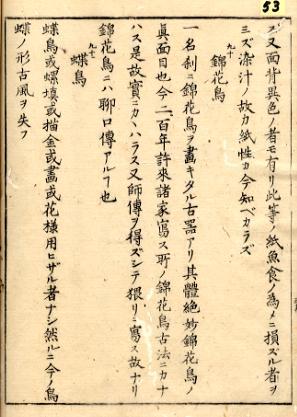 53
又面背異色ノ者モ有リ此等ノ紙魚食ノ為メニ損ズル者ヲ
ミズ染汁ノ故カ紙性カ今知ベカラズ
九十
錦花鳥
一名刹ニ錦花鳥ヲ畫キタル古器アリ其體絶妙錦花鳥ノ
眞面目也今二百年許来諸家寫ス所ノ錦花鳥古法ニカナ
ハス是故實ニカヽハラス又師傳ヲ得ズシテ猥リニ寫ス故ナリ
錦花鳥ニハ聊口傳アルヿ也
九十一
蝶鳥
蝶鳥或螺填或描金或畫或花様用ヒザル者ナシ然ルニ今ノ鳥
蝶ノ形古風ヲ失フ